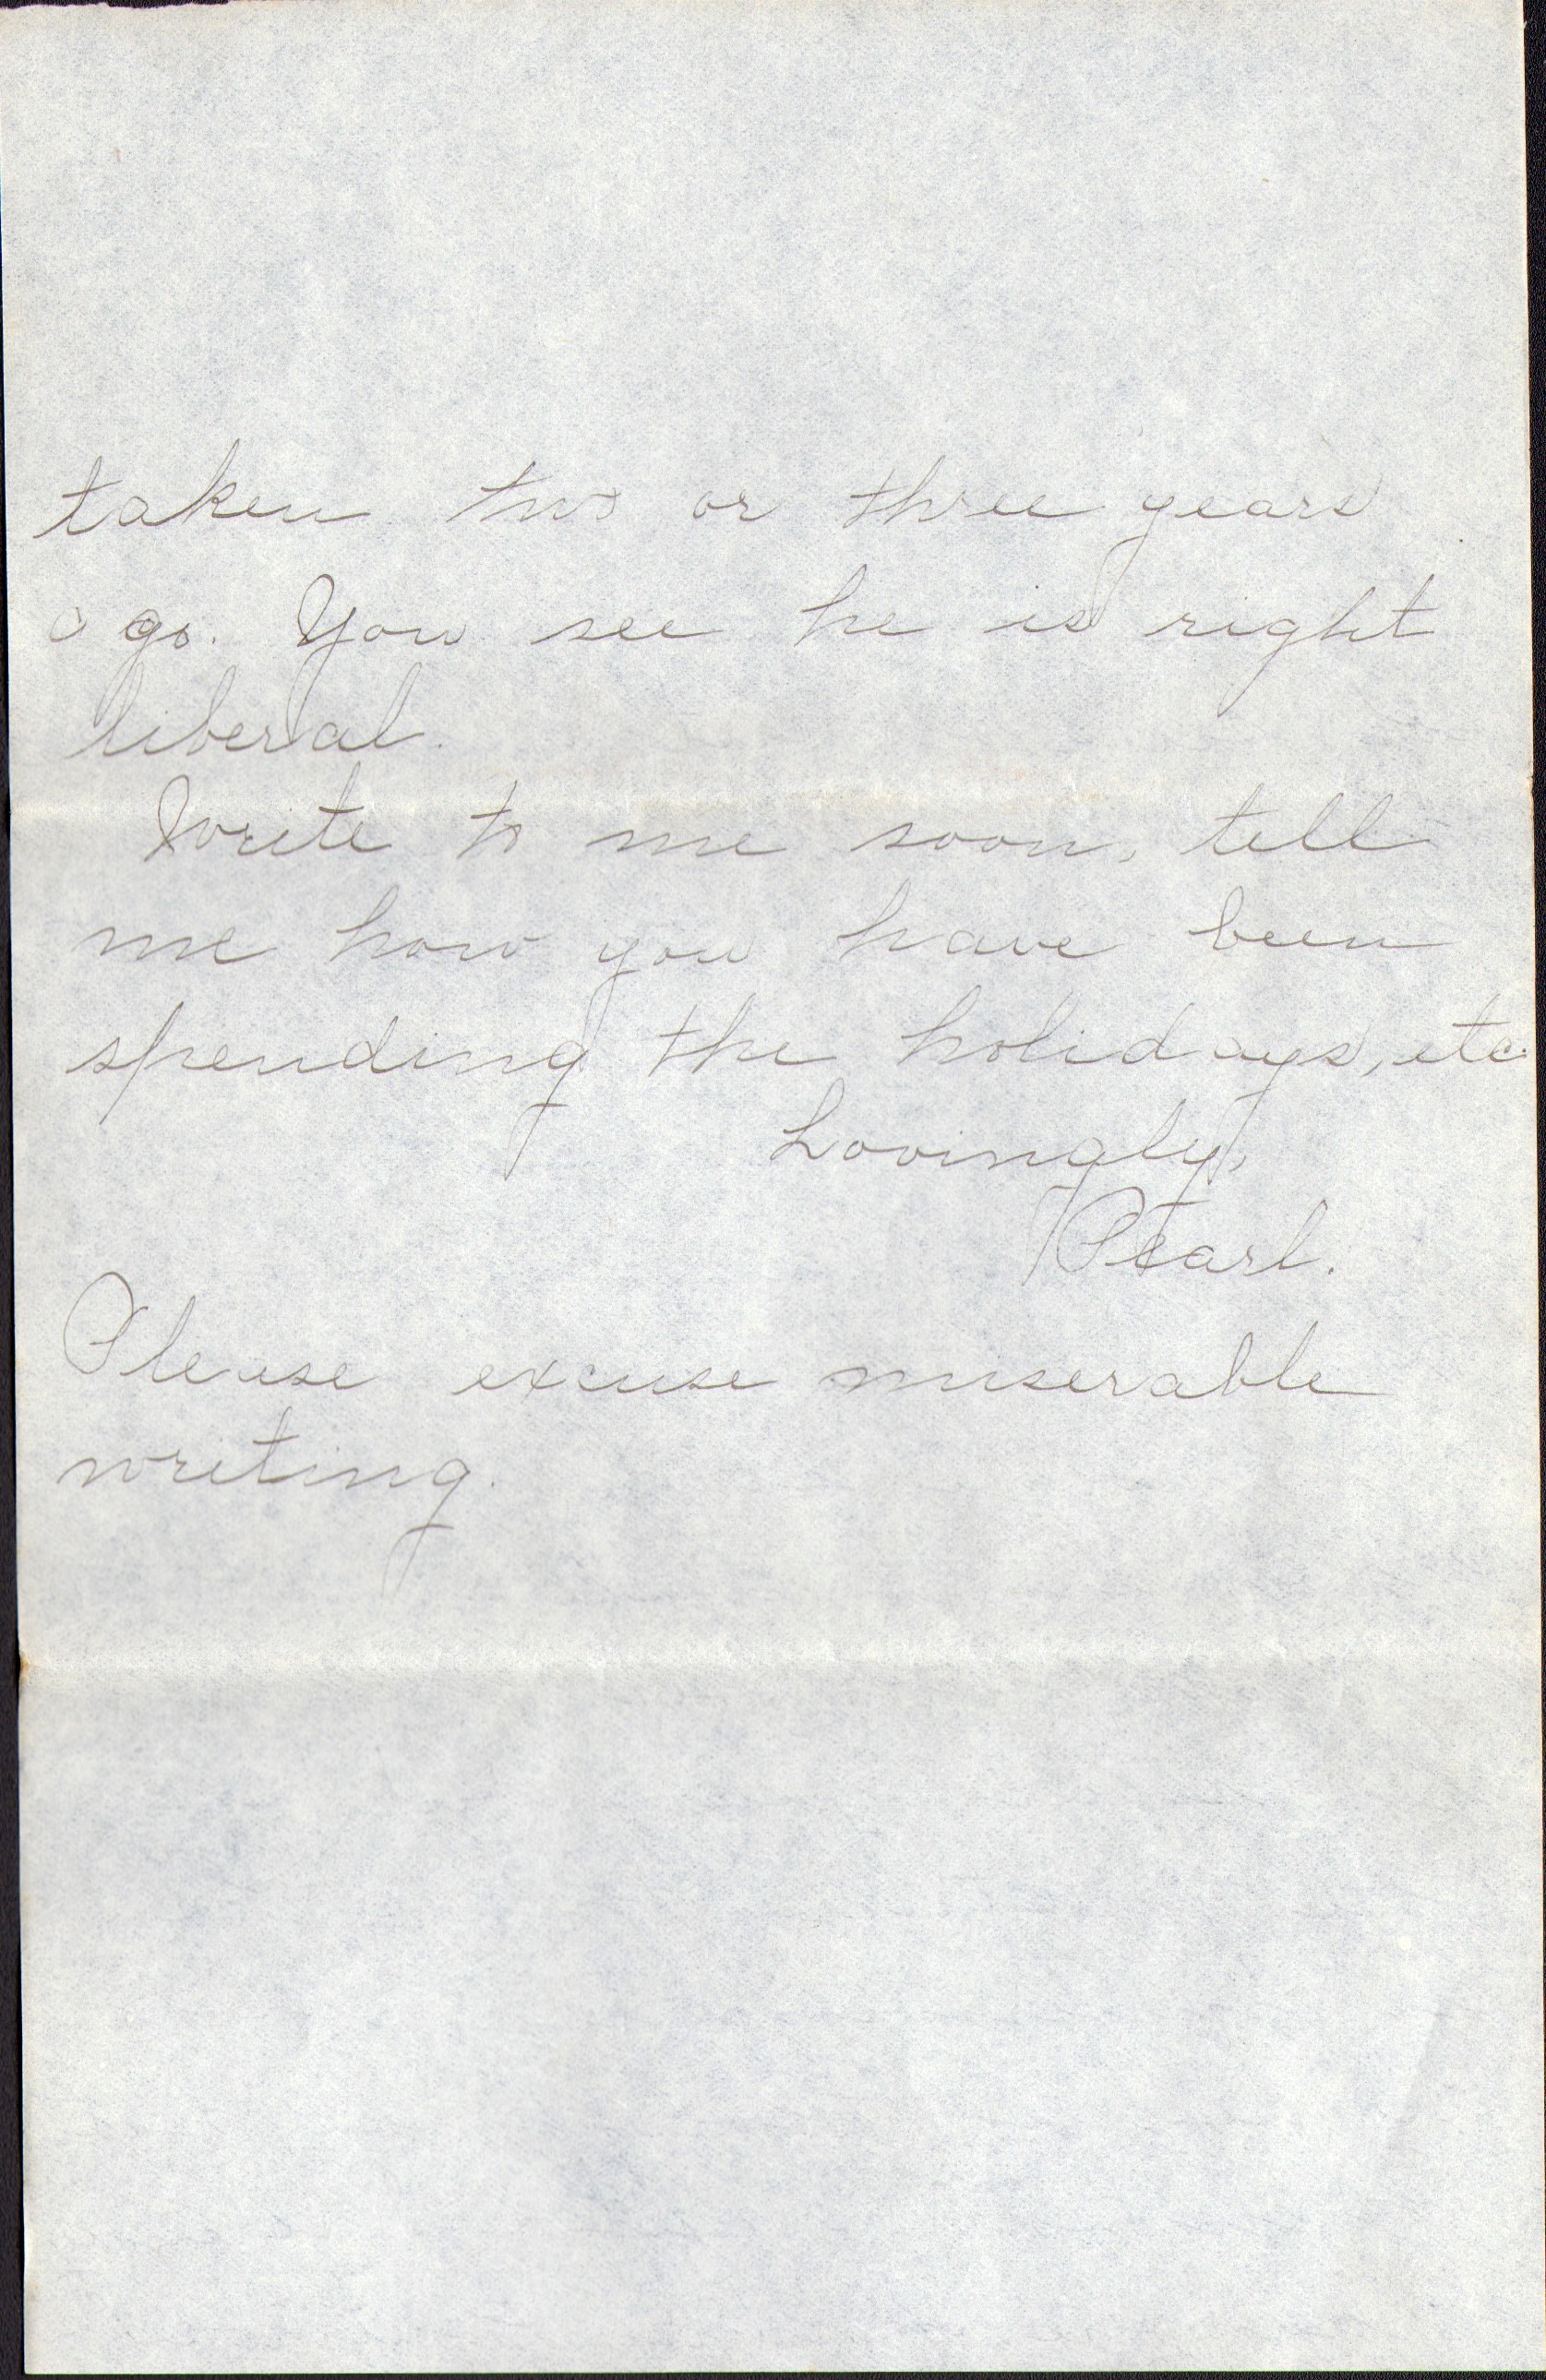 taken two or three years
ago. You see he is right
liberal.
Write to me soon, tell
me how you have been
spending the holidays, etc.
Lovingly,
Pearl.
Please excuse miserable
writing.